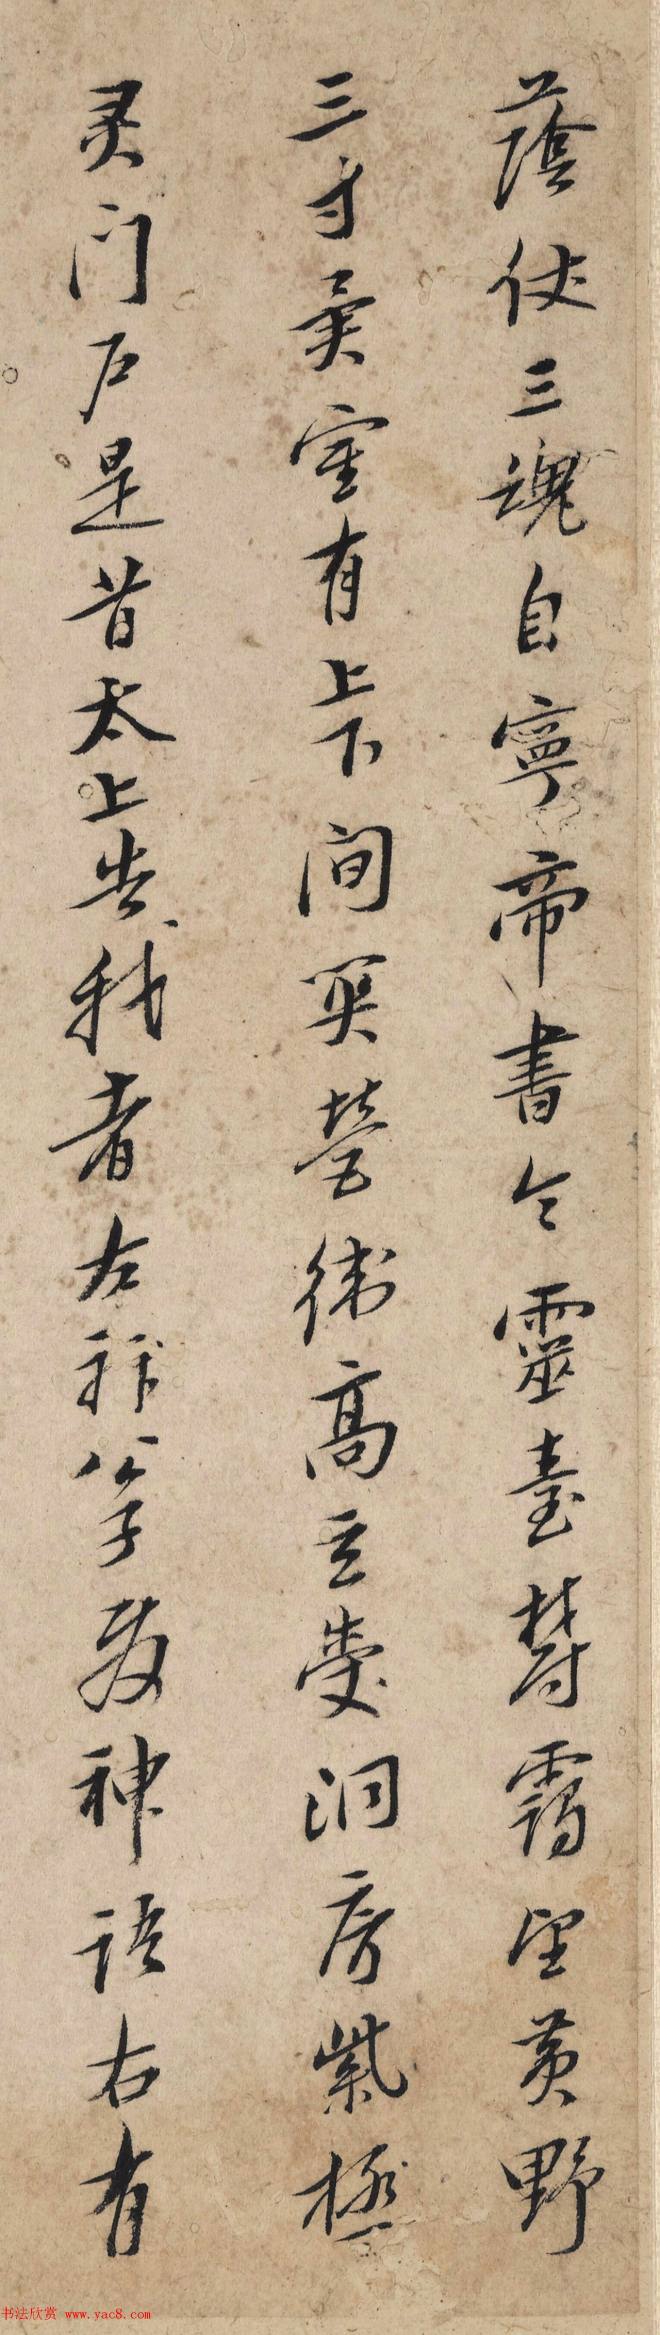 蔭仗三魂自寧帝書令靈臺欝靄望黃野
三寸異室有上下間関營衛高玄受洞房紫極
灵门户是昔太上告我者左神公子發神语右有
书法欣赏 www.yac8.com